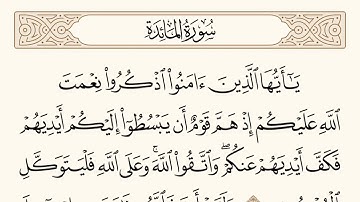 سُورَةُ المَائِدَةِ
يَٰٓأَيُّهَا ٱلَّذِينَ ءَامَنُوا۟ ٱذْكُرُوا۟ نِعْمَتَ
ٱللَّهِ عَلَيْكُمْ إِذْ هَمَّ قَوْمٌ أَن يَبْسُطُوٓا۟ إِلَيْكُمْ أَيْدِيَهُمْ
فَكَفَّ أَيْدِيَهُمْ عَنكُمْ ۖ وَٱتَّقُوا۟ ٱللَّهَ ۚ وَعَلَى ٱللَّهِ فَلْيَتَوَكَّلِ